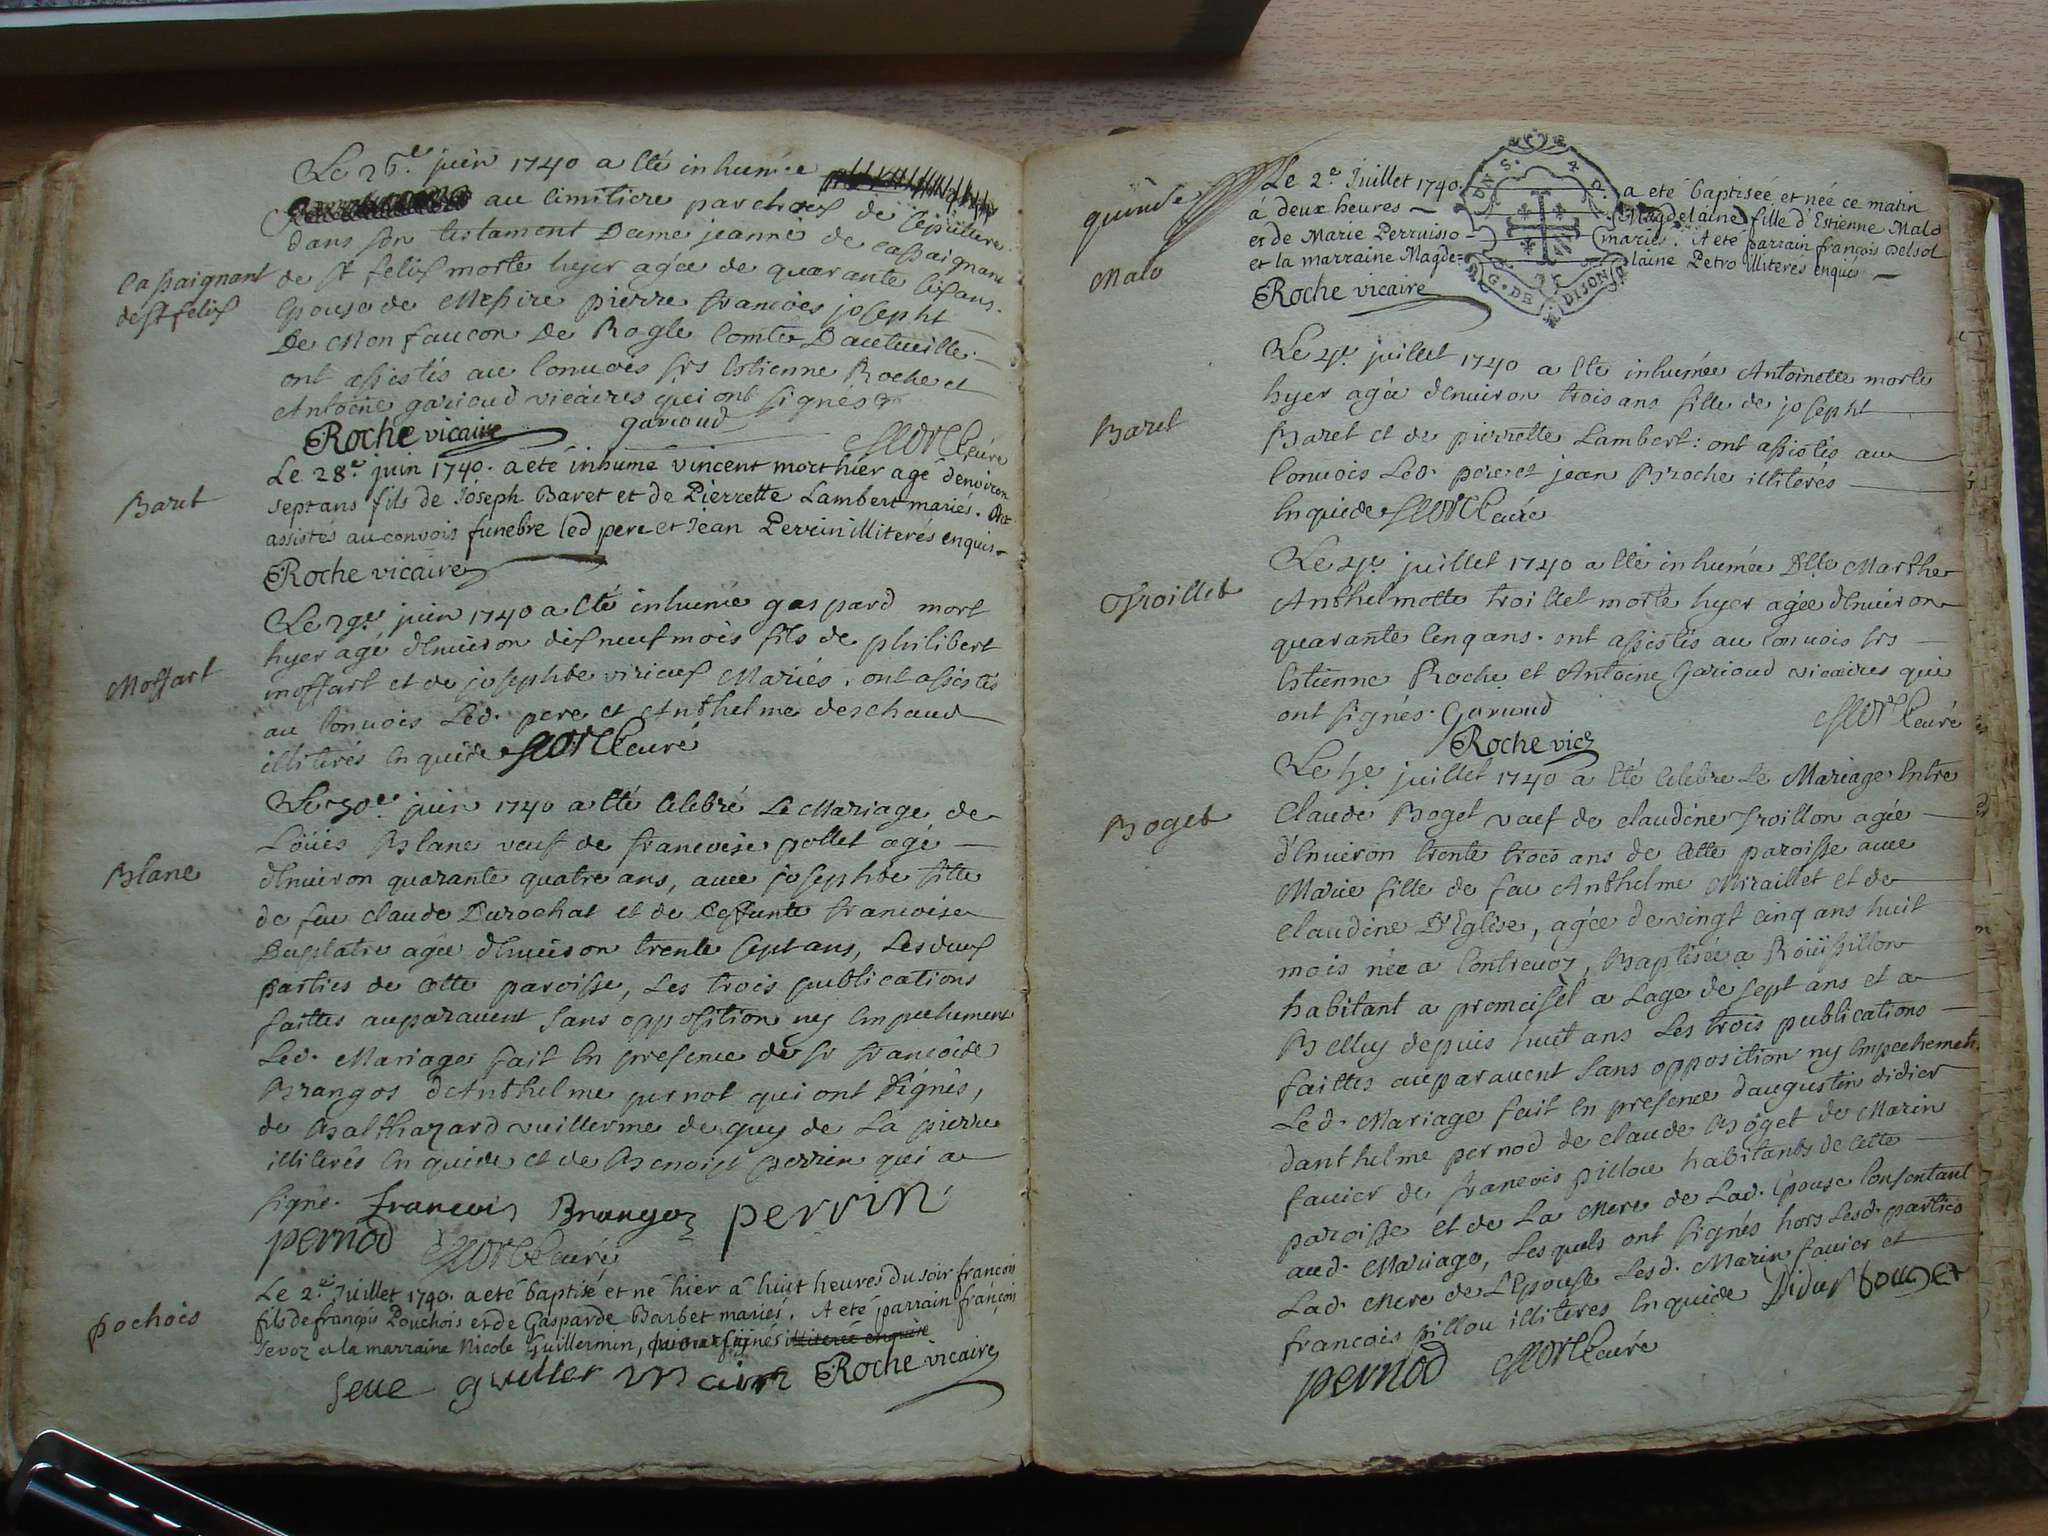 Le 26e. juin 1740 a été inhumée
au cimitiere par choix de sépulture
dans son testament Dame jeanne de cassaignant
Cassaignant
de St felix
de St felix morte hyer agée de quarante six ans.
Epouse de Messire pierre francois joseph
De Monfaucon De Rogle Comte Dauteuille.
ont assistés au convois srs Estienne Roche et
Antoine garioud vicaires qui ont signés
Roche vicaire garioud curé
Le 28e. juin 1740. a eté inhumé vincent mort hier agé d'environ
Baret
sept ans fils de Joseph Baret et de Pierrette Lambert mariés. Ont
assistés au convois funebre led pere et Jean Perrin illiterés enquis
Roche vicaire
Le 29e. juin 1740 a été inhumé gaspard mort
hyer agé d'enuiron dix neuf mois fils de philibert
Moffart
moffart et de josephte virieux Mariés. ont assistés
au conuois Led. pere et Anthelme deschaud
illiterés enquis de curé
Le 30e. juin 1740 a été celebré Le Mariage de
Loüis Blanc veuf de francoise pollet agé
Blanc
d'enuiron quarante quatre ans, auec josephte fille
de feu claude Durochat et de Deffunte francoise
Duplatre agée d'enuiron trente sept ans, Les deux
parties de cette paroisse, Les trois publications
faittes auparauent sans opposition ny empechement
Led. Mariage fait en presence de sr francois
Brangos d'Anthelme pernot qui ont signés,
de Balthazard vuillerme de guy de La pierre
illiterés enquis de et de Benoist perrin qui a
signé. francois Brangoz perrin
pernod curé
Le 2e. Juillet 1740. a eté baptisé et né hier à huit heures du soir françois
pochois
fils de françois Pouchois et de Gasparde Barbet mariés. A eté parrain françois
Jevoz et la marraine Nicole Guillermin, qui ont signés illiteré enquire
Roche vicaire
quinde
Le 2e. Juillet 1740. a eté baptiseé et née ce matin
à deux heures Magdelaine fille d'Estienne Malo
et de Marie Perruisso mariés. A eté parrain françois Delsol
Malo
et la marraine Magdelaine Petro illiterés enquis
Roche vicaire
G. DE DIJON
Le 4e. juillet 1740 a été inhumée Antoinette morte
hyer agée d'enuiron trois ans fille de joseph
Baret
Baret et de pierrette Lambert: ont assistés au
conuois Led. pere et jean Broche illiterés
enquis de curé
Le 4e. juillet 1740 a été inhumée Dlle Marthe
Troillet
Anthelmette troillet morte hyer agée d'enuiron
quarante cinq ans. ont assistés au conuois srs
Estienne Roche et Antoine Garioud vicaires qui
ont signés. Garioud curé
Roche vice
Le 5e juillet 1740 a été celebré Le Mariage entre
Boget
Claude Boget veuf de claudine froillon agée
d'enuiron trente trois ans de cette paroisse auec
Marie fille de feu Anthelme Miraillet et de
claudine D'Eglise, agée de vingt cinq ans huit
mois née a Contreuoz, Baptisée a Roüissillon
habitant a promeisel a Lage de sept ans et a
Belley depuis huit ans Les trois publications
faittes auparauent sans opposition ny empechement
Led. Mariage fait en presence d'augustin didier
d'anthelme pernod de claude Boget de Marin
fauier de francois pillou habitants de cette
paroisse et de La Mere de Lad. épouse consentant
aud. Mariage, Lesquels ont signés hors Lesd. parties
Lad. Mere de L'Epouse Lesd. Marin fauier et
francois pillou illiteres enquis de Didier bouget
pernod curé